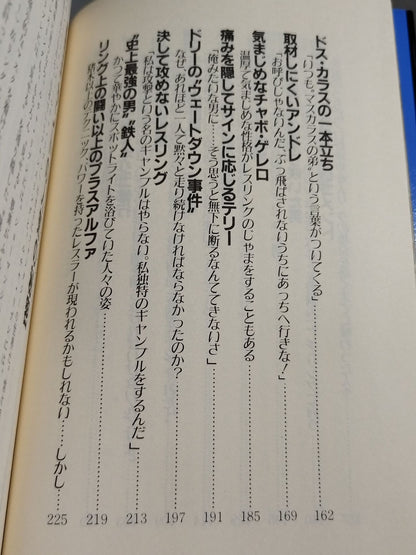 ドス・カラスの一本立ち
「いつも、〝マスカラスの弟〟という言葉がついてくる」……162
取材しにくいアンドレ
「お呼びじゃないんだ、ぶっ飛ばされないうちにあっちへ行きな！」……169
気まじめなチャボ・ゲレロ
温厚で気まじめな性格がレスリングのじゃまをすることもある……185
痛みを隠してサインに応じるテリー
「俺みたいな男に……そう思うと無下に断るなんてできないさ」……191
ドリーの〝ウェートダウン事件〟
なぜ、あれほど一人で黙々と走り続けなければならなかったのか？……197
決して攻めないレスリング
「私は攻撃という名のギャンブルはやらない。私独特のギャンブルをするんだ」……213
〝史上最強の男〟〝鉄人〟
かつて華やかにスポットライトを浴びていた人々の姿……219
リング上の闘い以上のプラスアルファ
猪木以上のテクニック、パワーを持ったレスラーが現われるかもしれない……しかし……225